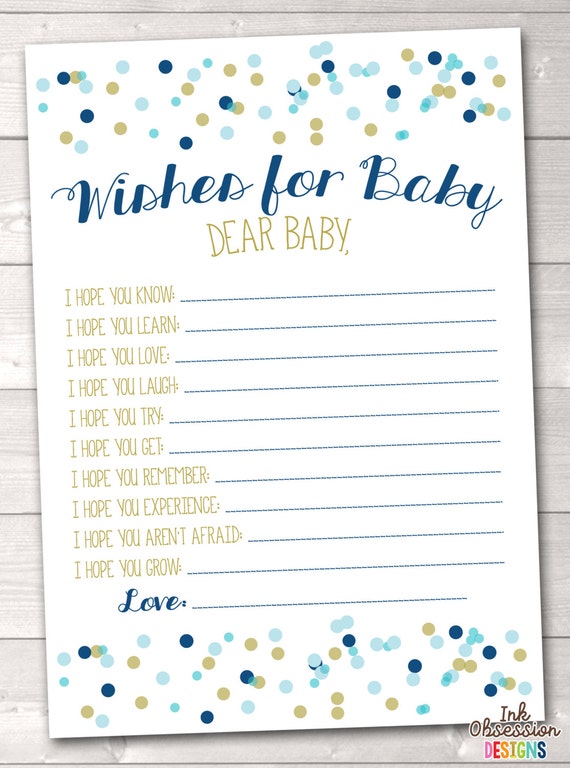 Wishes for Baby
DEAR BABY,
I HOPE YOU KNOW:
I HOPE YOU LEARN:
I HOPE YOU LOVE:
I HOPE YOU LAUGH:
I HOPE YOU TRY:
I HOPE YOU GET:
I HOPE YOU REMEMBER:
I HOPE YOU EXPERIENCE:
I HOPE YOU AREN'T AFRAID:
I HOPE YOU GROW:
Love:
Ink
Obsession
DESIGNS